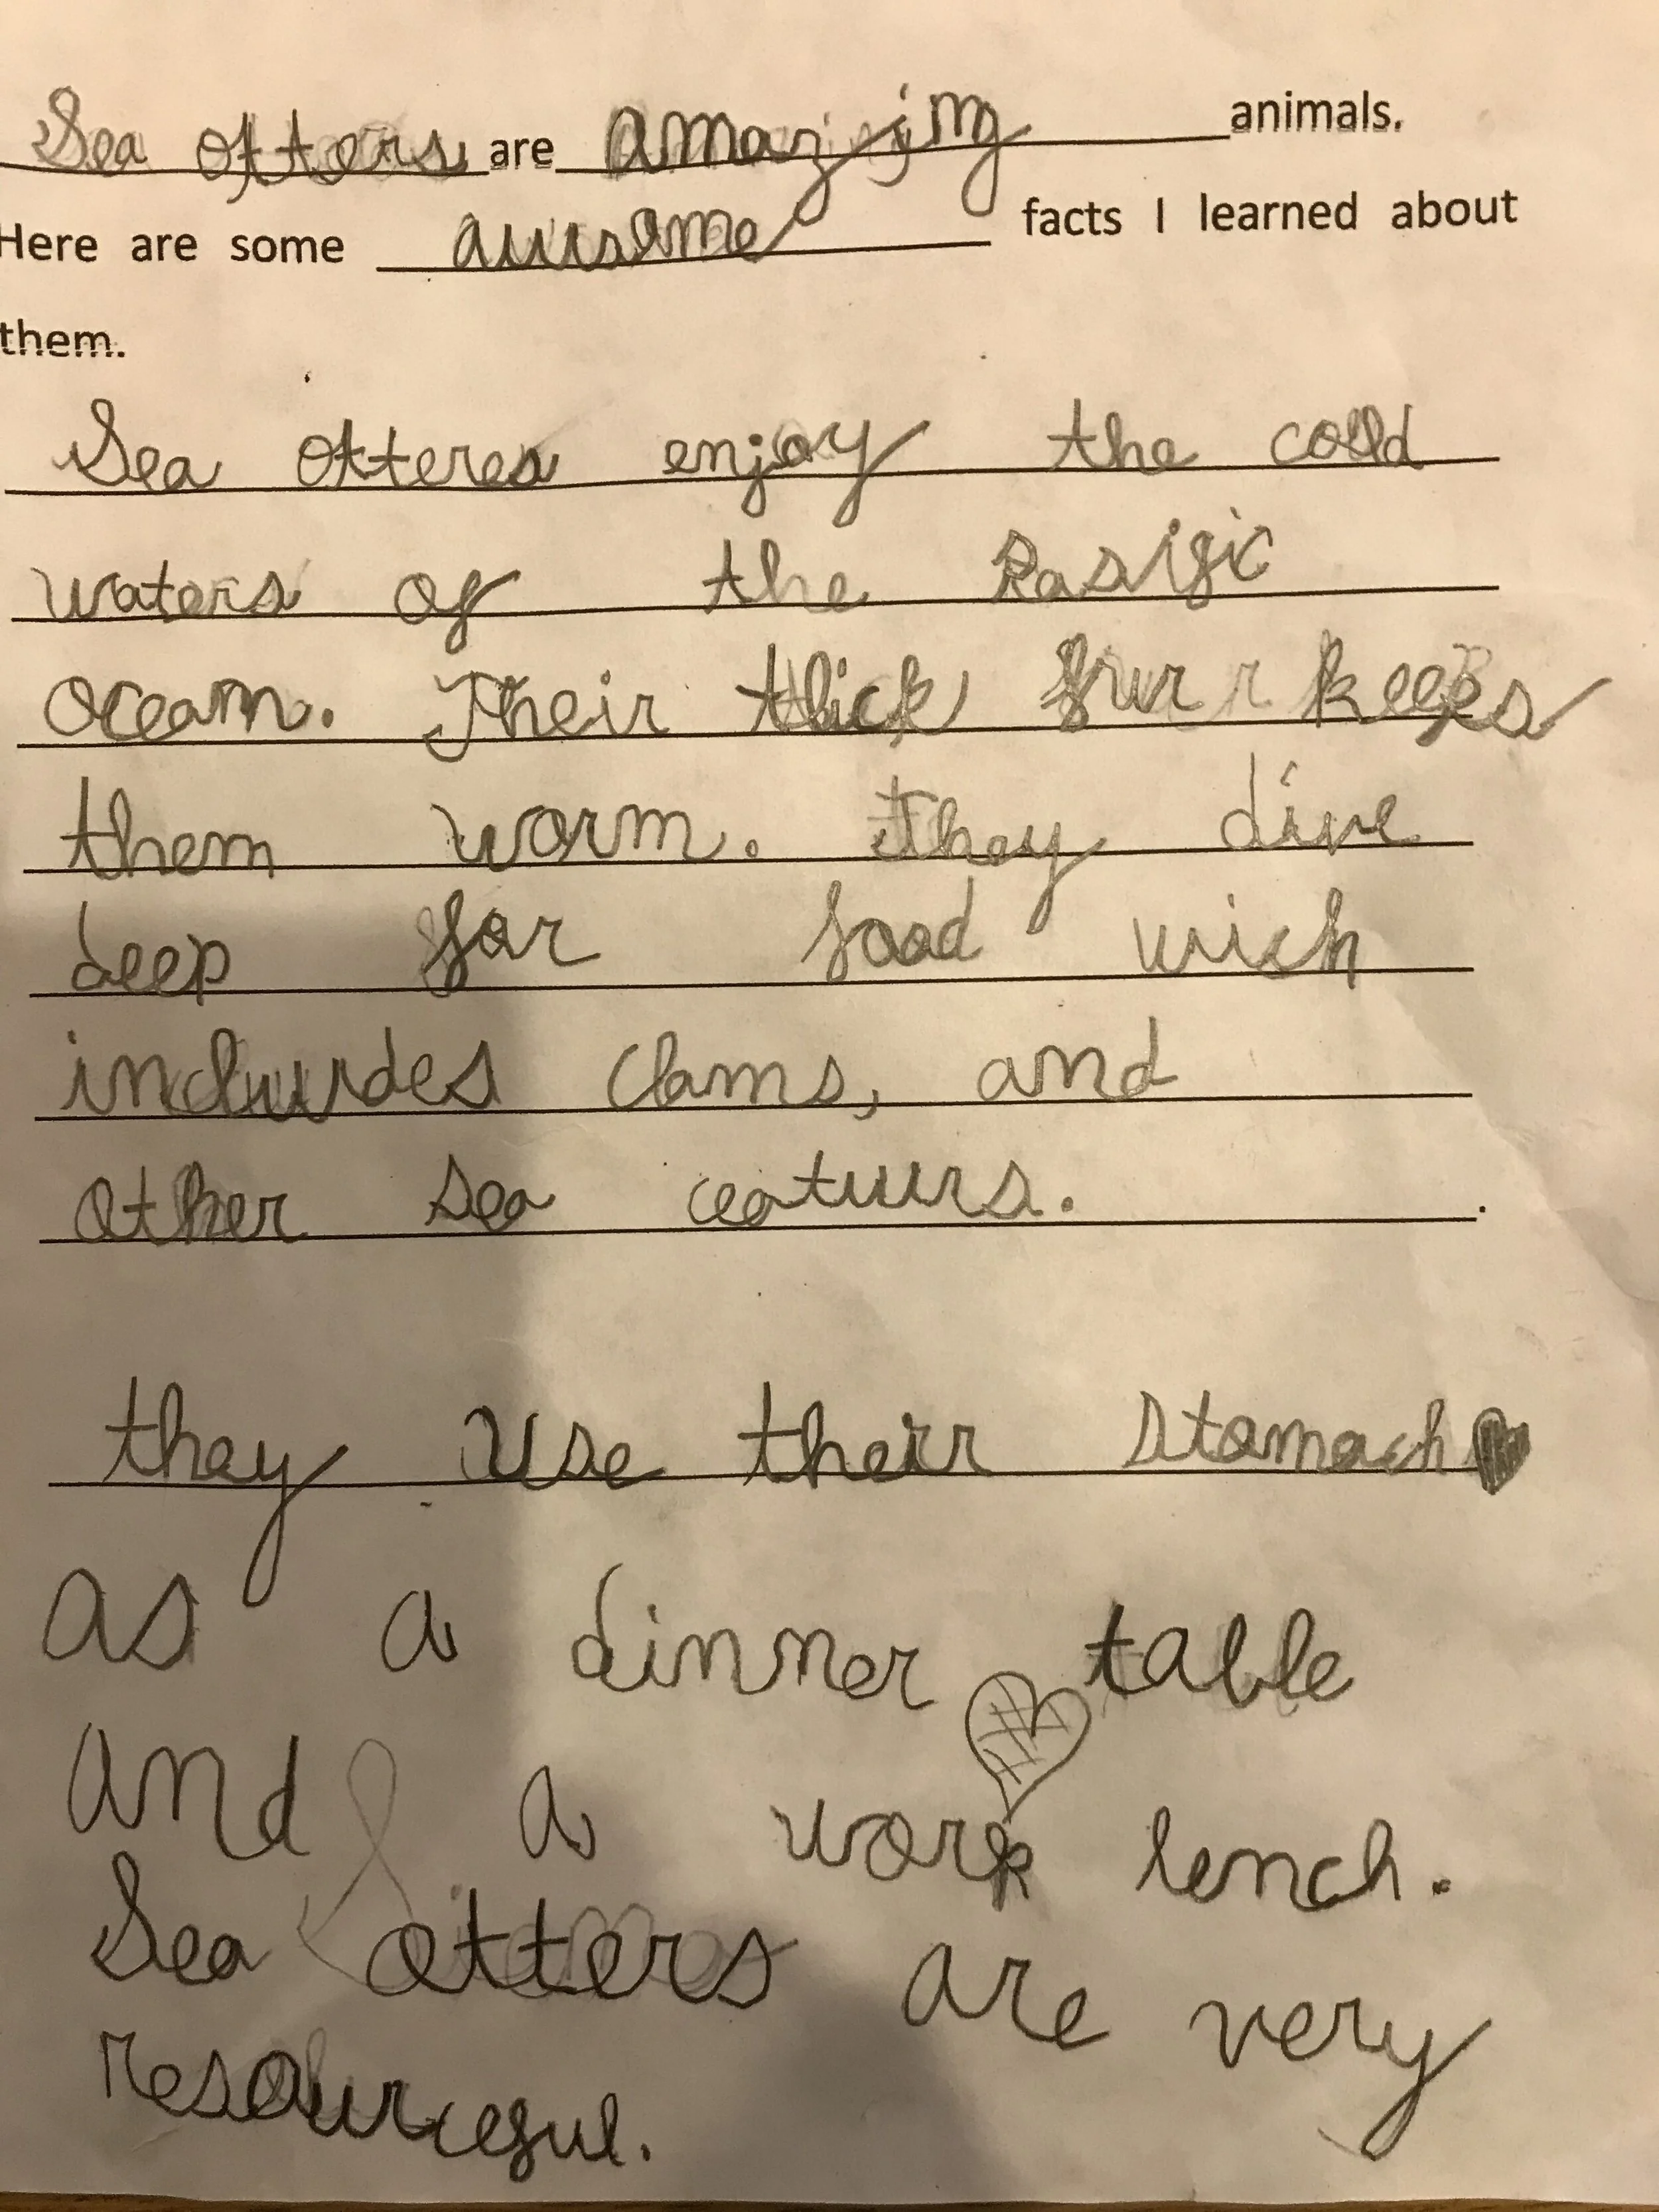 Sea otters are amazing animals.
Here are some ausome facts I learned about
them.
Sea otteres enjoy the cold
waters of the Pasific
ocean. Their thick fur keeps
them worm. they dive
deep for food wich
includes clams, and
other sea ceaturs.
.
they use their stomach
as a dinner table
and a work lench.
Sea otters are very
resourceful.